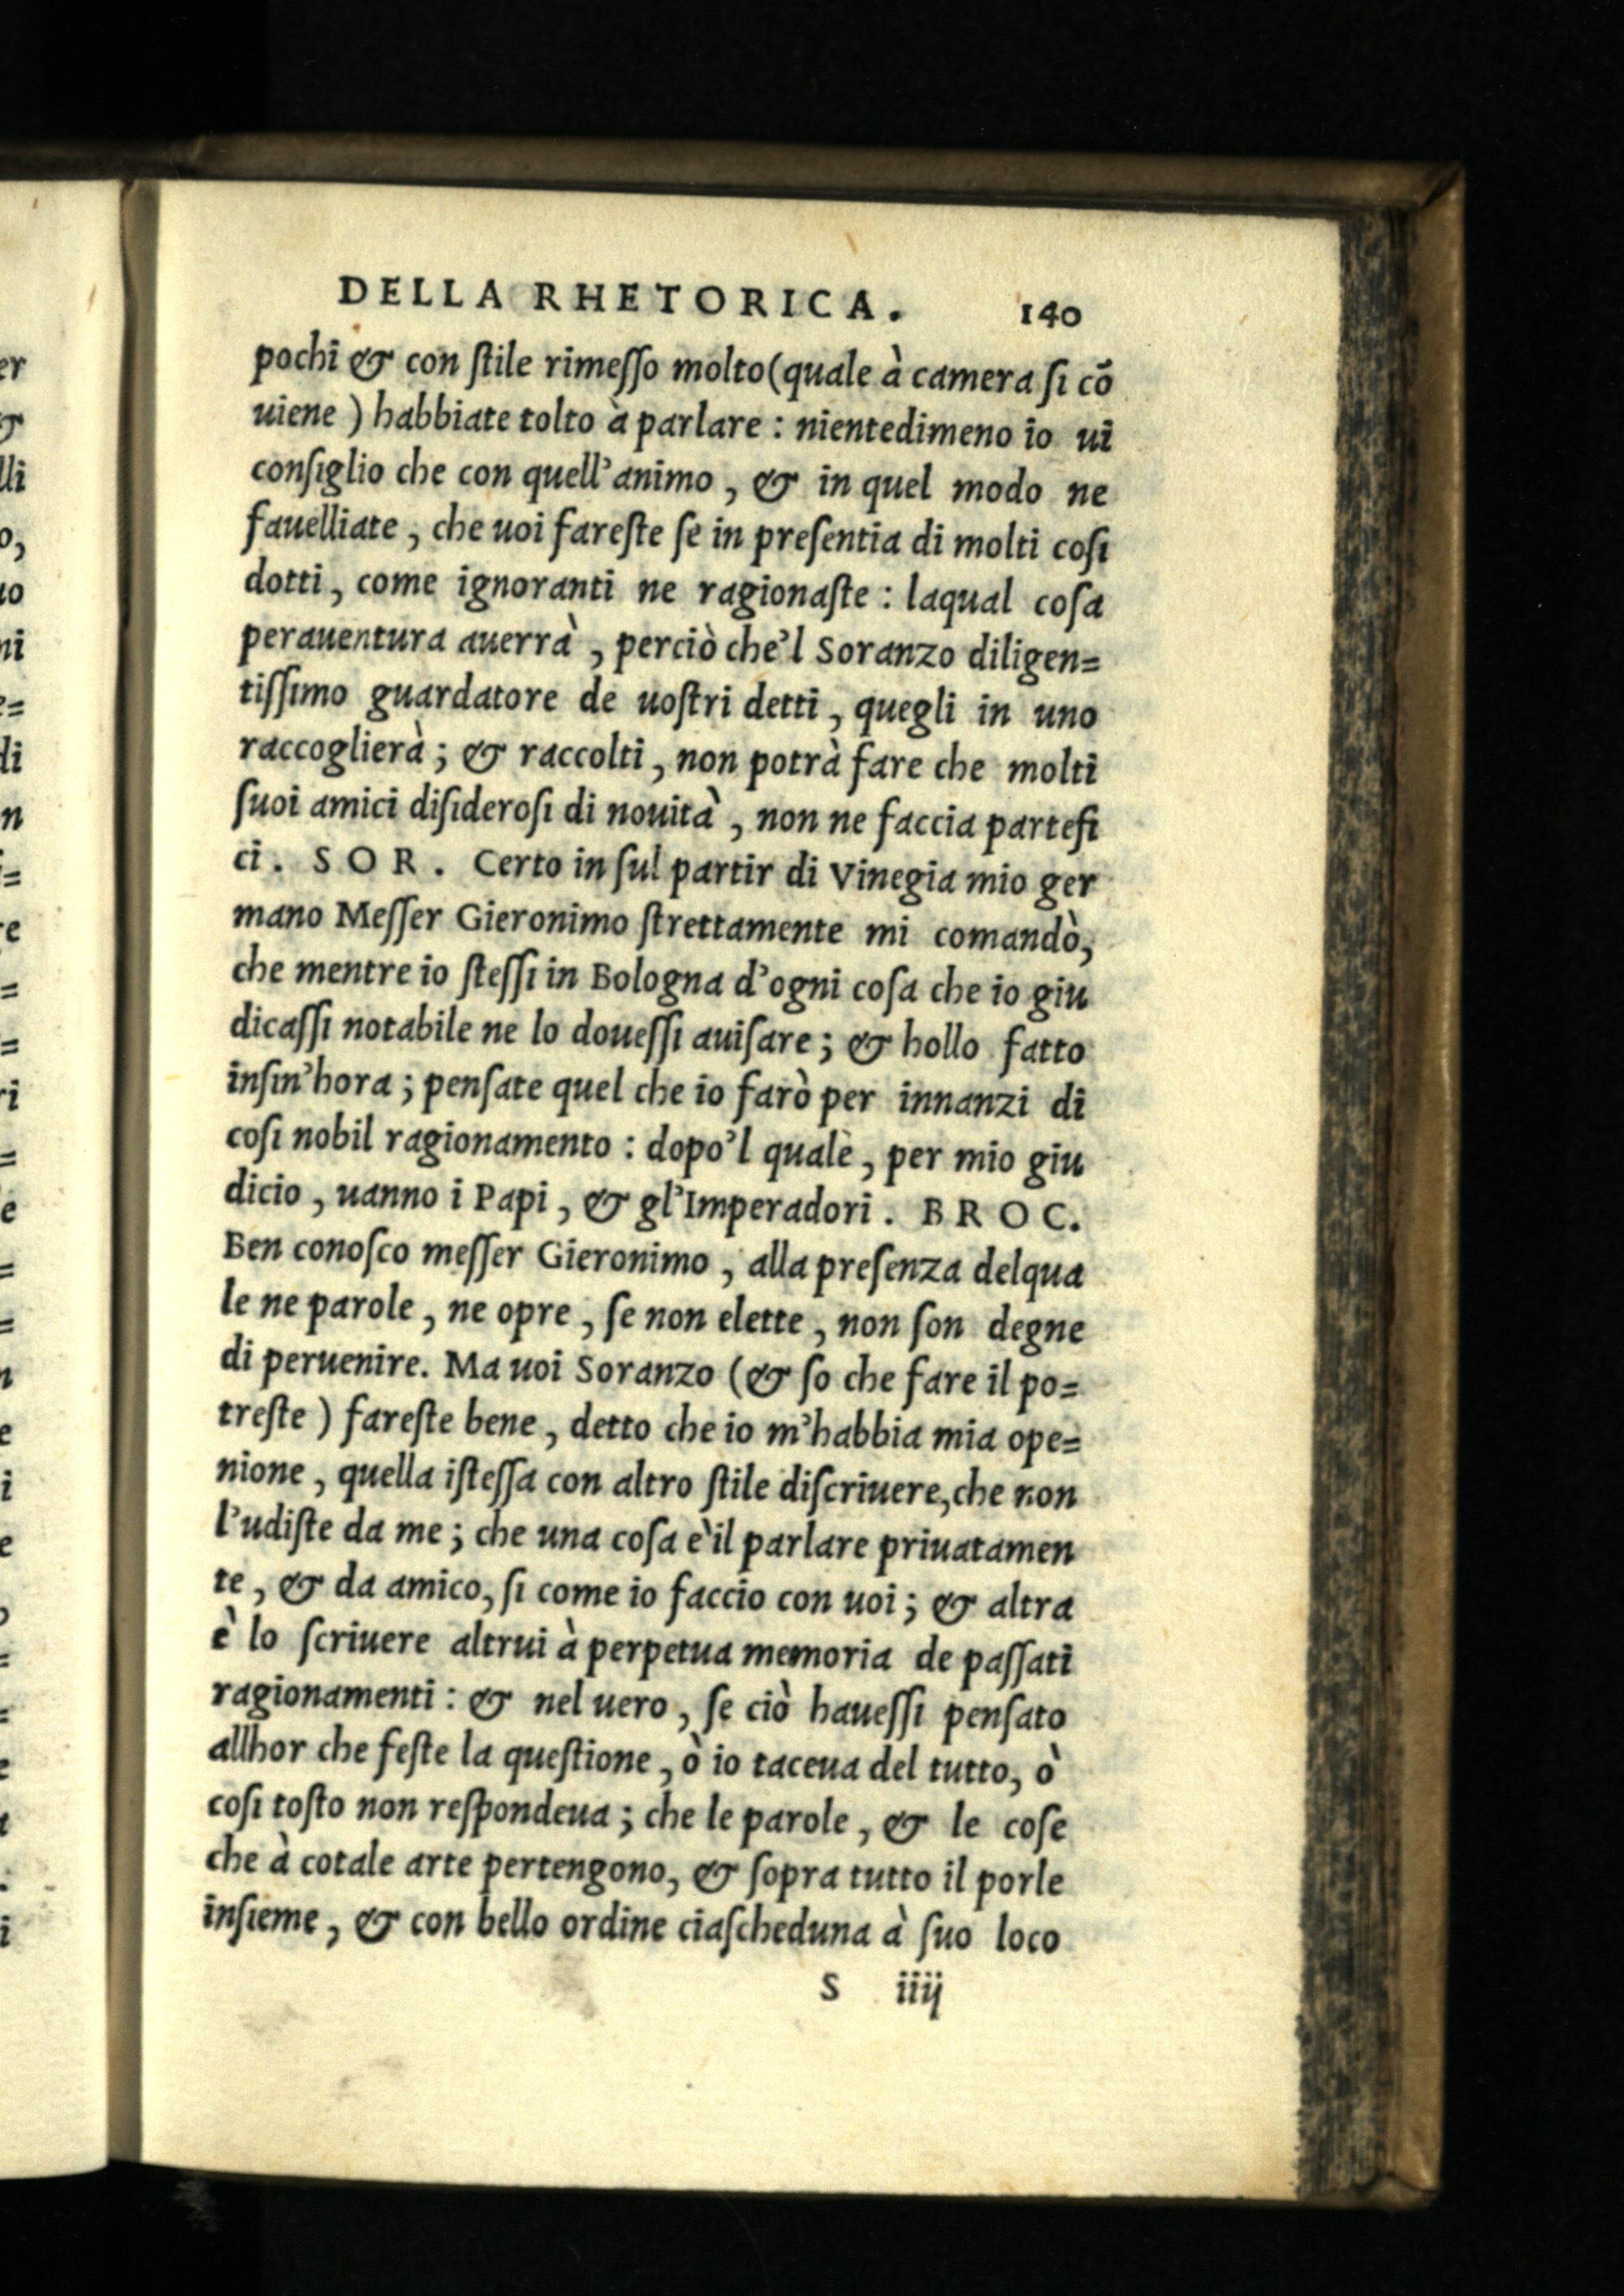 DELLA RHETORICA. 140
pochi & con ſtile rimeſſo molto (quale à camera ſi cõ
uiene ) habbiate tolto à parlare : nientedimeno io ui
conſiglio che con quell'animo , & in quel modo ne
fauelliate , che uoi fareſte ſe in preſentia di molti coſi
dotti , come ignoranti ne ragionaſte : laqual coſa
perauentura auerrà , perciò che'l Soranzo diligen=
tiſſimo guardatore de uoſtri detti , quegli in uno
raccoglierà ; & raccolti , non potrà fare che molti
ſuoi amici diſideroſi di nouità , non ne faccia partefi
ci . SOR . Certo in ſul partir di Vinegia mio ger
mano Meſſer Gieronimo ſtrettamente mi comandò,
che mentre io ſteſſi in Bologna d'ogni coſa che io giu
dicaſſi notabile ne lo doueſſi auiſare ; & hollo fatto
inſin'hora ; penſate quel che io farò per innanzi di
coſi nobil ragionamento : dopo'l quale , per mio giu
dicio , uanno i Papi , & gl'Imperadori . BROC.
Ben conoſco meſſer Gieronimo , alla preſenza delqua
le ne parole , ne opre , ſe non elette , non ſon degne
di peruenire. Ma uoi Soranzo (& ſo che fare il po=
treſte ) fareſte bene , detto che io m'habbia mia ope=
nione , quella iſteſſa con altro ſtile diſcriuere,che non
l'udiſte da me ; che una coſa e`il parlare priuatamen
te , & da amico, ſi come io faccio con uoi ; & altra
è lo ſcriuere altrui à perpetua memoria de paſſati
ragionamenti : & nel uero , ſe ciò haueſſi penſato
allhor che feſte la queſtione , ò io taceua del tutto, ò
coſi toſto non reſpondeua ; che le parole , & le coſe
che à cotale arte pertengono, & ſopra tutto il porle
inſieme , & con bello ordine ciaſcheduna à ſuo loco
S iiij